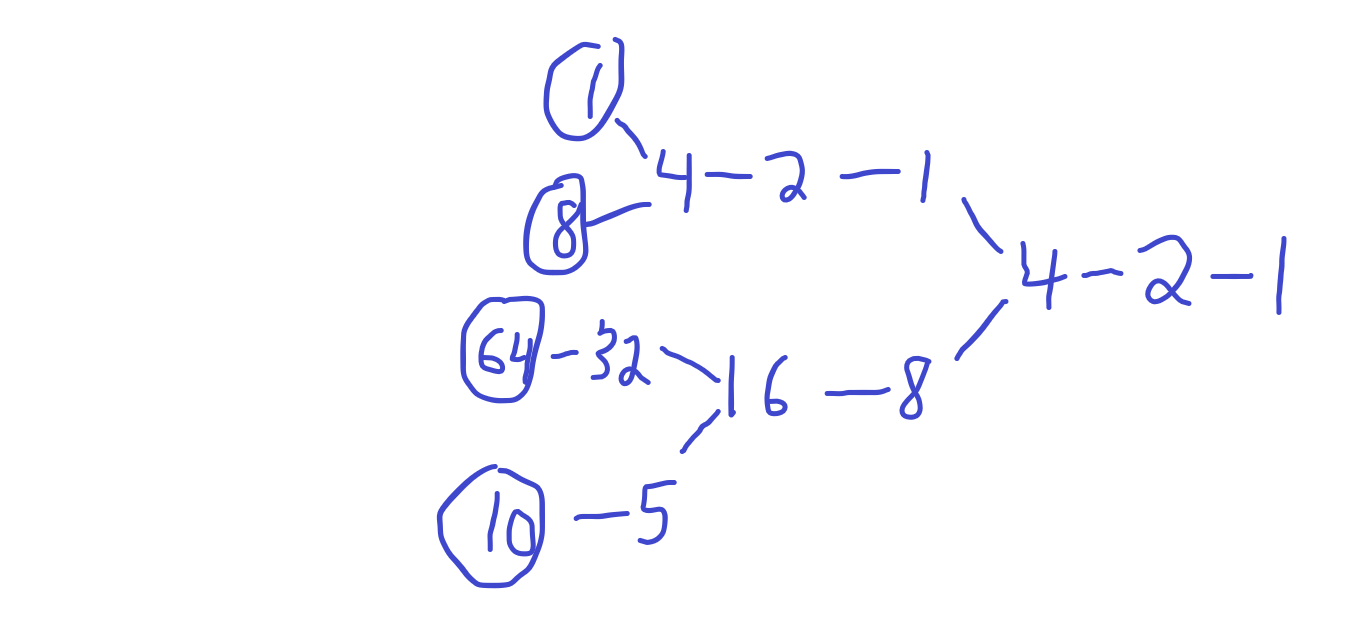 1
4 — 2 — 1
8
4 — 2 — 1
64 — 32
16 — 8
10 — 5